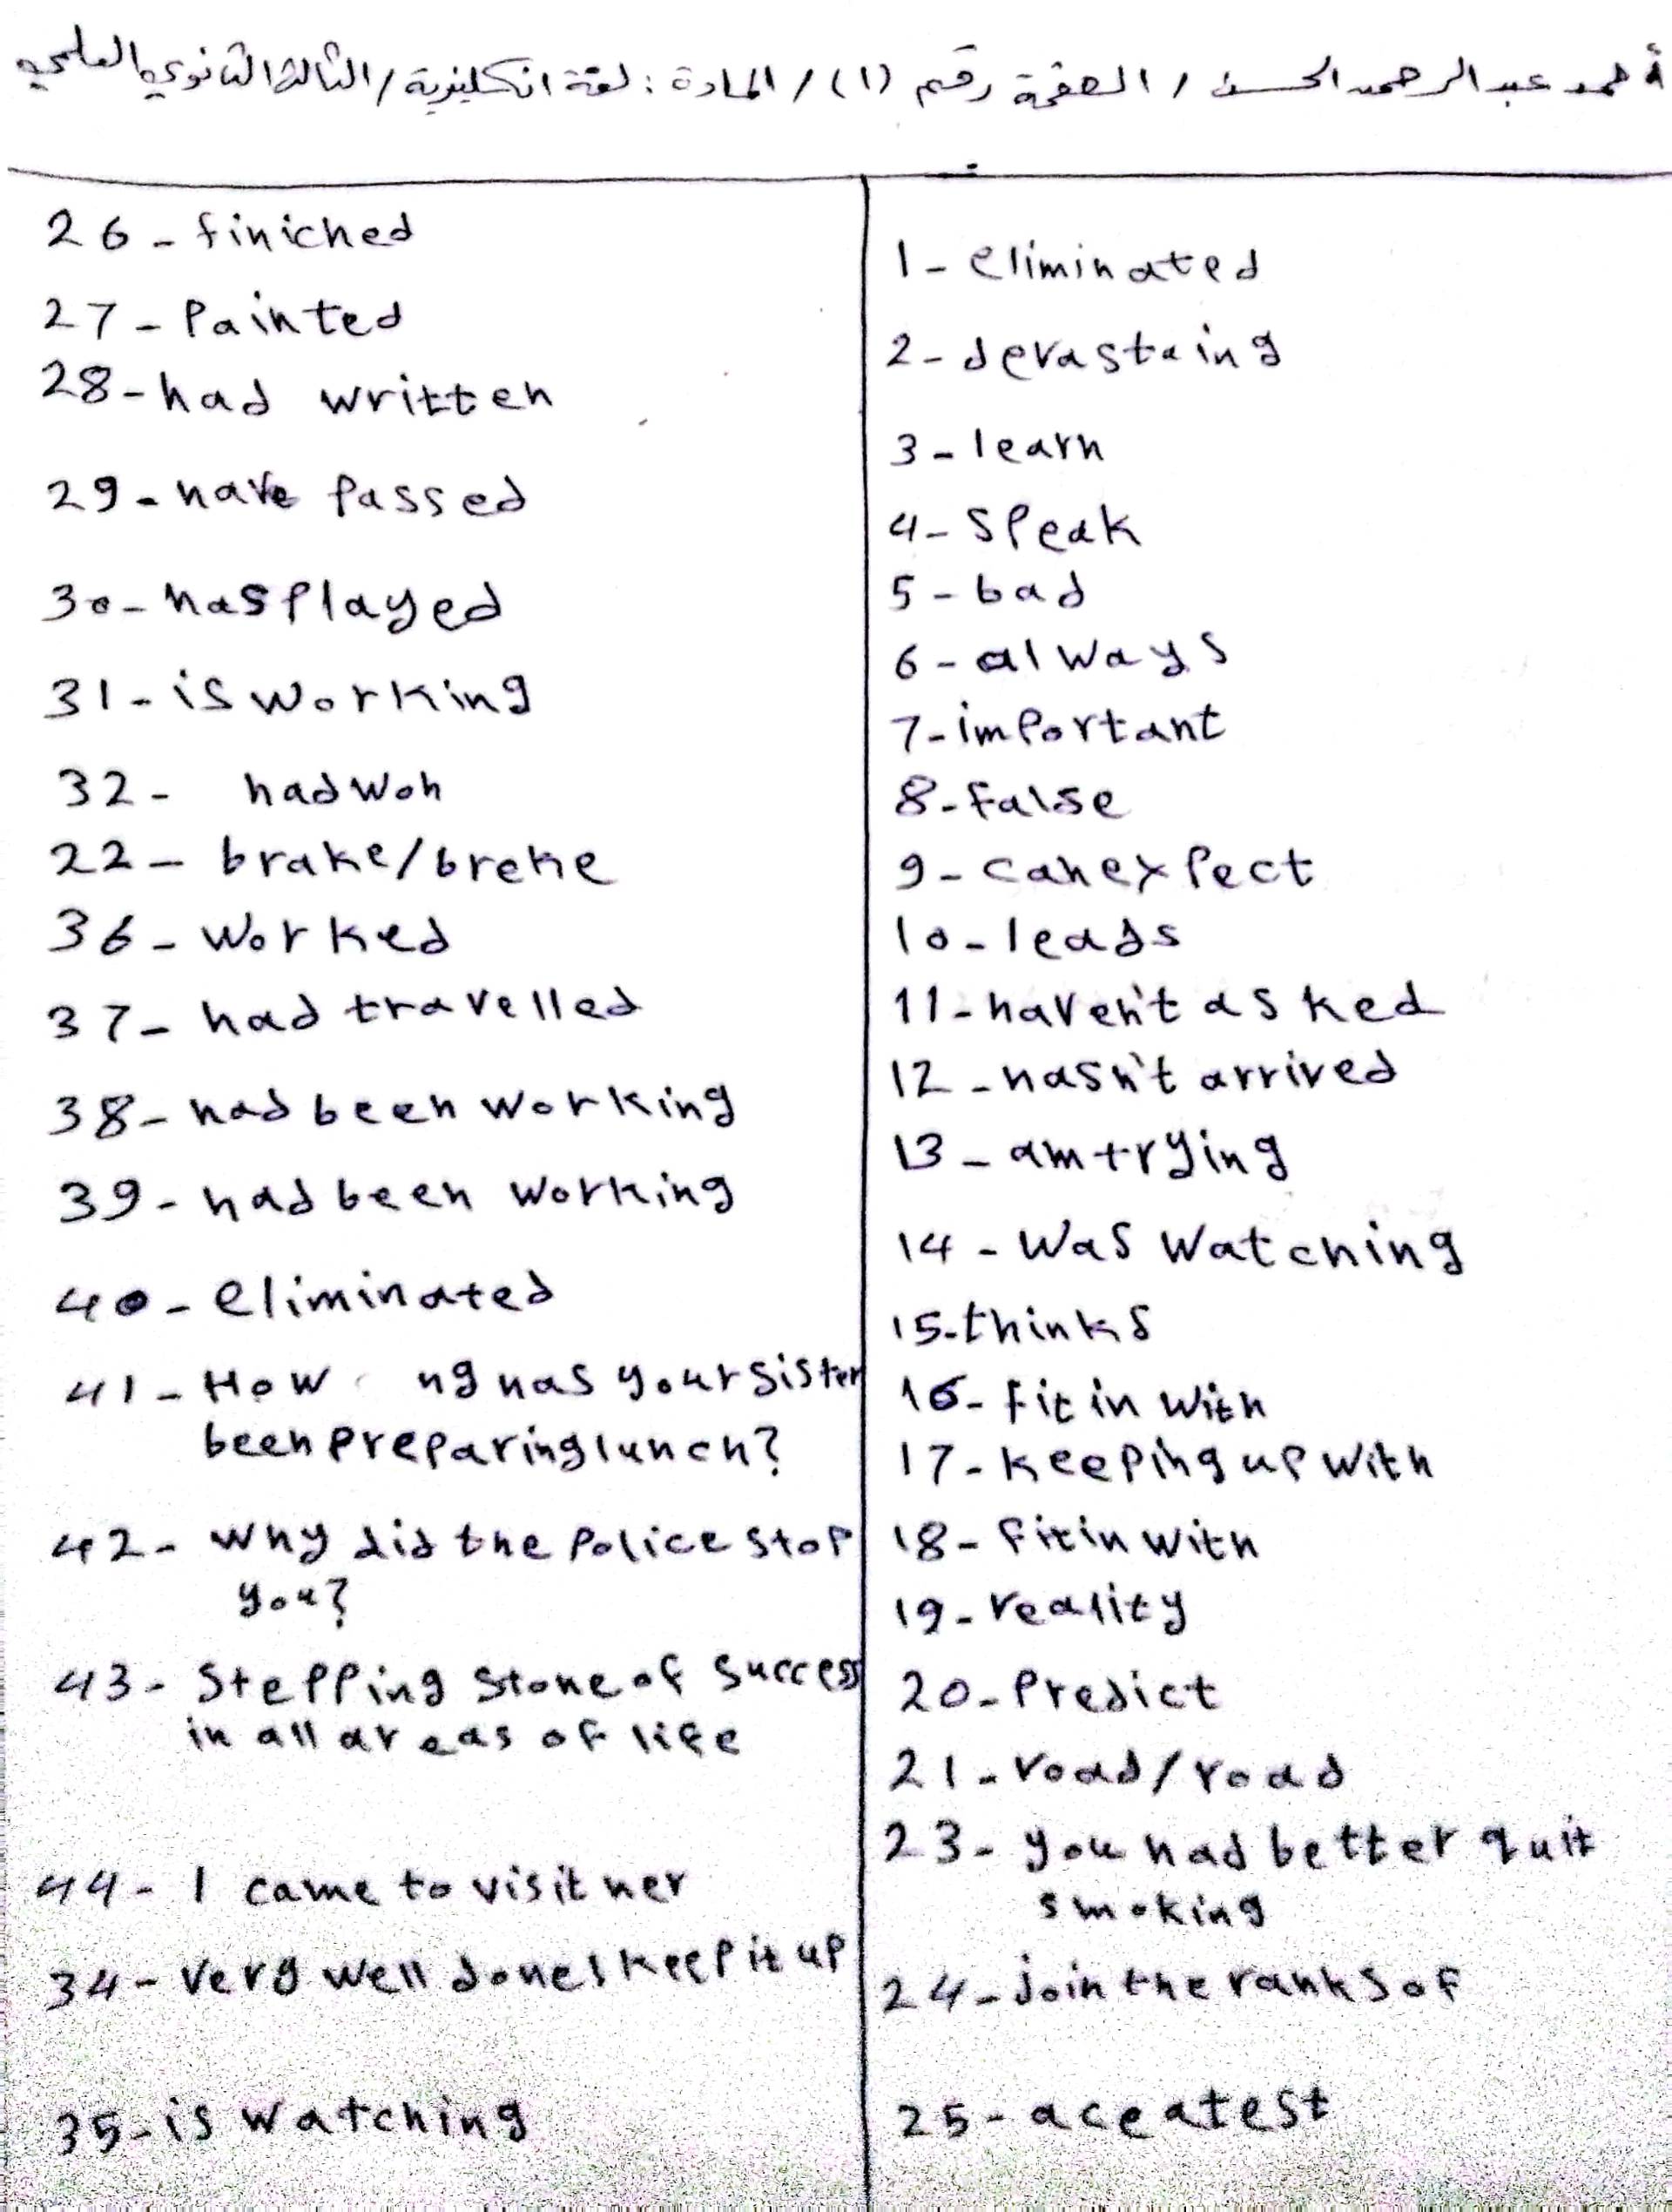 أحمد عبد الرحمن الحسن / الصفحة رقم (١) / المادة : لغة انكليزية / الثالث الثانوي العلمي
1 - eliminated
2 - devastaing
3 - learn
4 - speak
5 - bad
6 - always
7 - important
8 - false
9 - can expect
10 - leads
11 - haven't asked
12 - hasn't arrived
13 - am trying
14 - was watching
15 - thinks
16 - fit in with
17 - keeping up with
18 - fit in with
19 - reality
20 - Predict
21 - road / road
23 - you had better quit
smoking
24 - join the ranks of
25 - ace a test
26 - finiched
27 - Painted
28 - had written
29 - have passed
30 - has played
31 - is working
32 - had won
22 - brake / breke
36 - worked
37 - had travelled
38 - had been working
39 - had been working
40 - eliminated
41 - How ng has your sister
been preparing lunch?
42 - why did the police stop
you?
43 - Stepping stone of success
in all areas of life
44 - I came to visit her
34 - very well done! keep it up
35 - is watching